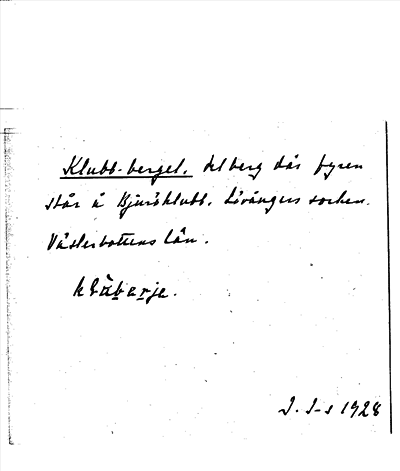 Klubb-berget. det berg där fyren
står å Bjuröklubb. Lövångers socken.
Västerbottens län.
J. J-s 1928